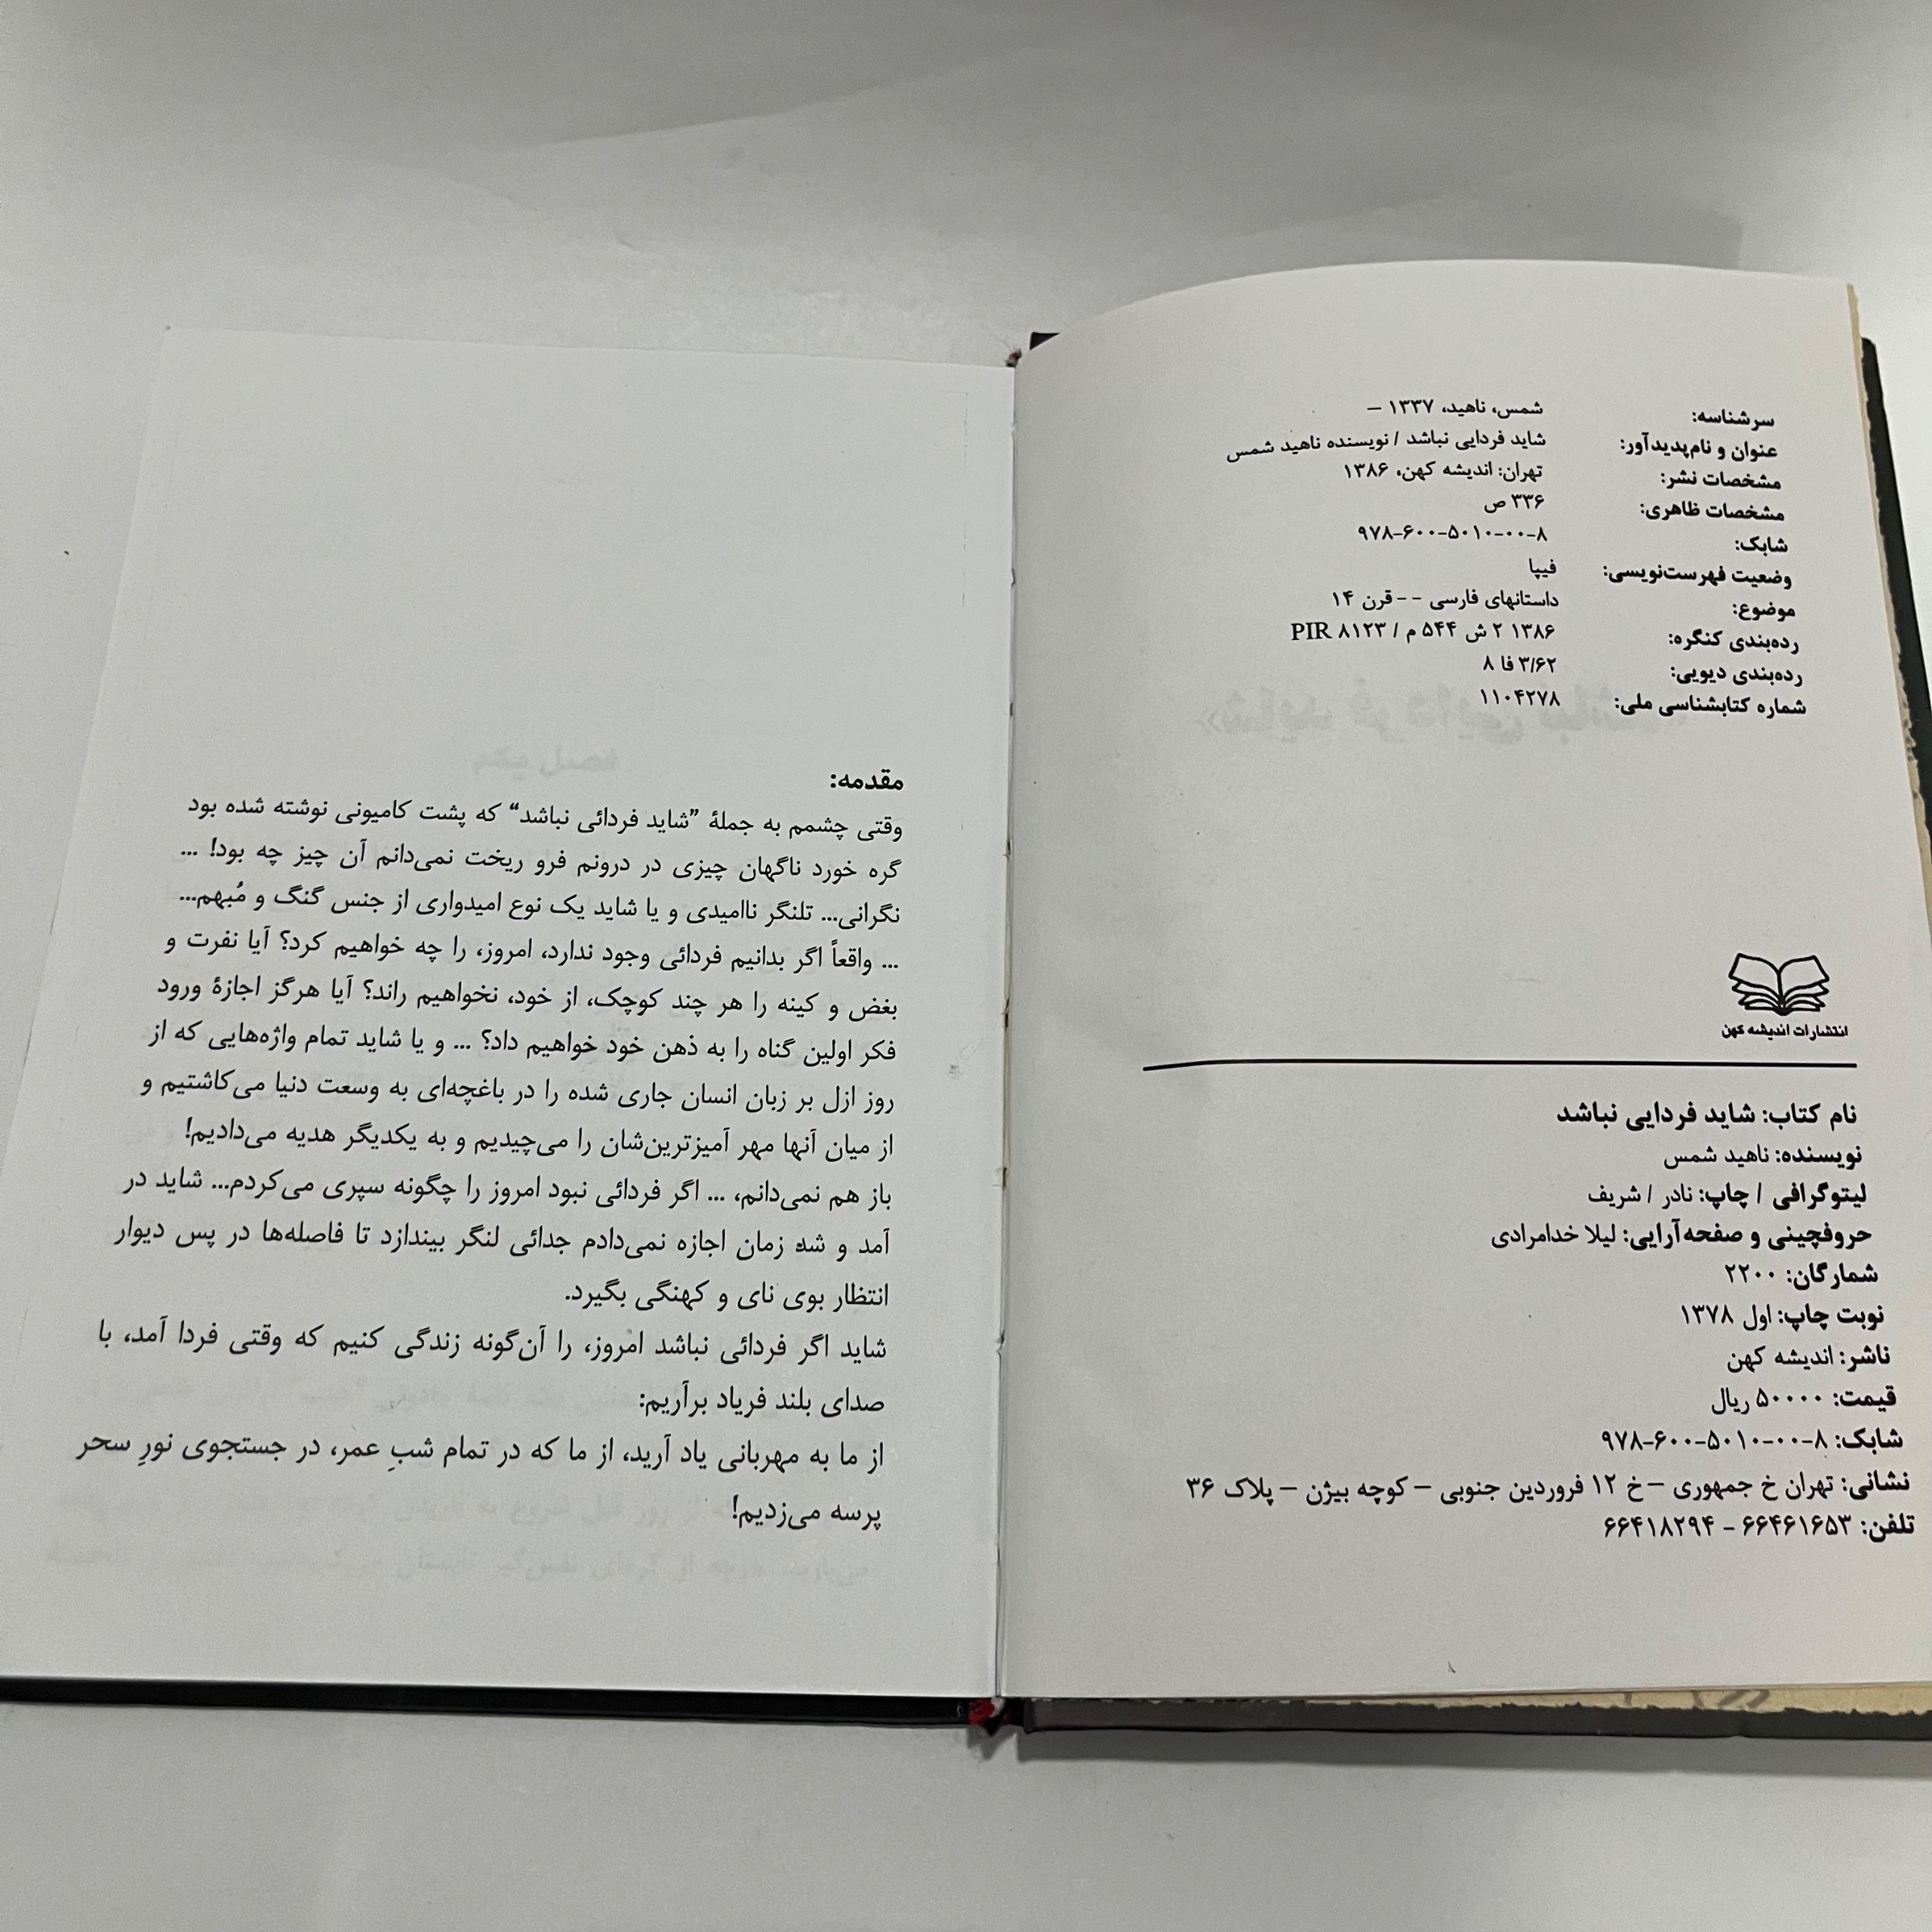 سرشناسه: شمس، ناهید، ۱۳۳۷ –
عنوان و نام‌پدیدآور: شاید فردایی نباشد / نویسنده ناهید شمس
مشخصات نشر: تهران: اندیشه کهن، ۱۳۸۶
مشخصات ظاهری: ۳۳۶ ص
شابک: ۹۷۸-۶۰۰-۵۰۱۰-۰۰-۸
وضعیت فهرست‌نویسی: فیپا
موضوع: داستانهای فارسی -- قرن ۱۴
رده‌بندی کنگره: ۱۳۸۶ ۲ ش ۵۴۴ م / PIR ۸۱۲۳
رده‌بندی دیویی: ۳/۶۲ فا ۸
شماره کتابشناسی ملی: ۱۱۰۴۲۷۸
انتشارات اندیشه کهن
نام کتاب: شاید فردایی نباشد
نویسنده: ناهید شمس
لیتوگرافی / چاپ: نادر / شریف
حروفچینی و صفحه‌آرایی: لیلا خدامرادی
شمارگان: ۲۲۰۰
نوبت چاپ: اول ۱۳۷۸
ناشر: اندیشه کهن
قیمت: ۵۰۰۰۰ ریال
شابک: ۹۷۸-۶۰۰-۵۰۱۰-۰۰-۸
نشانی: تهران خ جمهوری – خ ۱۲ فروردین جنوبی – کوچه بیژن – پلاک ۳۶
تلفن: ۶۶۴۶۱۶۵۳ - ۶۶۴۱۸۲۹۴
مقدمه:
وقتی چشمم به جملهٔ ”شاید فردائی نباشد“ که پشت کامیونی نوشته شده بود
گره خورد ناگهان چیزی در درونم فرو ریخت نمی‌دانم آن چیز چه بود! ...
نگرانی... تلنگر ناامیدی و یا شاید یک نوع امیدواری از جنس گنگ و مُبهم...
... واقعاً اگر بدانیم فردائی وجود ندارد، امروز، را چه خواهیم کرد؟ آیا نفرت و
بغض و کینه را هر چند کوچک، از خود، نخواهیم راند؟ آیا هرگز اجازهٔ ورود
فکر اولین گناه را به ذهن خود خواهیم داد؟ ... و یا شاید تمام واژه‌هایی که از
روز ازل بر زبان انسان جاری شده را در باغچه‌ای به وسعت دنیا می‌کاشتیم و
از میان آنها مهر آمیزترین‌شان را می‌چیدیم و به یکدیگر هدیه می‌دادیم!
باز هم نمی‌دانم، ... اگر فردائی نبود امروز را چگونه سپری می‌کردم... شاید در
آمد و شد زمان اجازه نمی‌دادم جدائی لنگر بیندازد تا فاصله‌ها در پس دیوار
انتظار بوی نای و کهنگی بگیرد.
شاید اگر فردائی نباشد امروز، را آن‌گونه زندگی کنیم که وقتی فردا آمد، با
صدای بلند فریاد برآریم:
از ما به مهربانی یاد آرید، از ما که در تمام شبِ عمر، در جستجوی نورِ سحر
پرسه می‌زدیم!